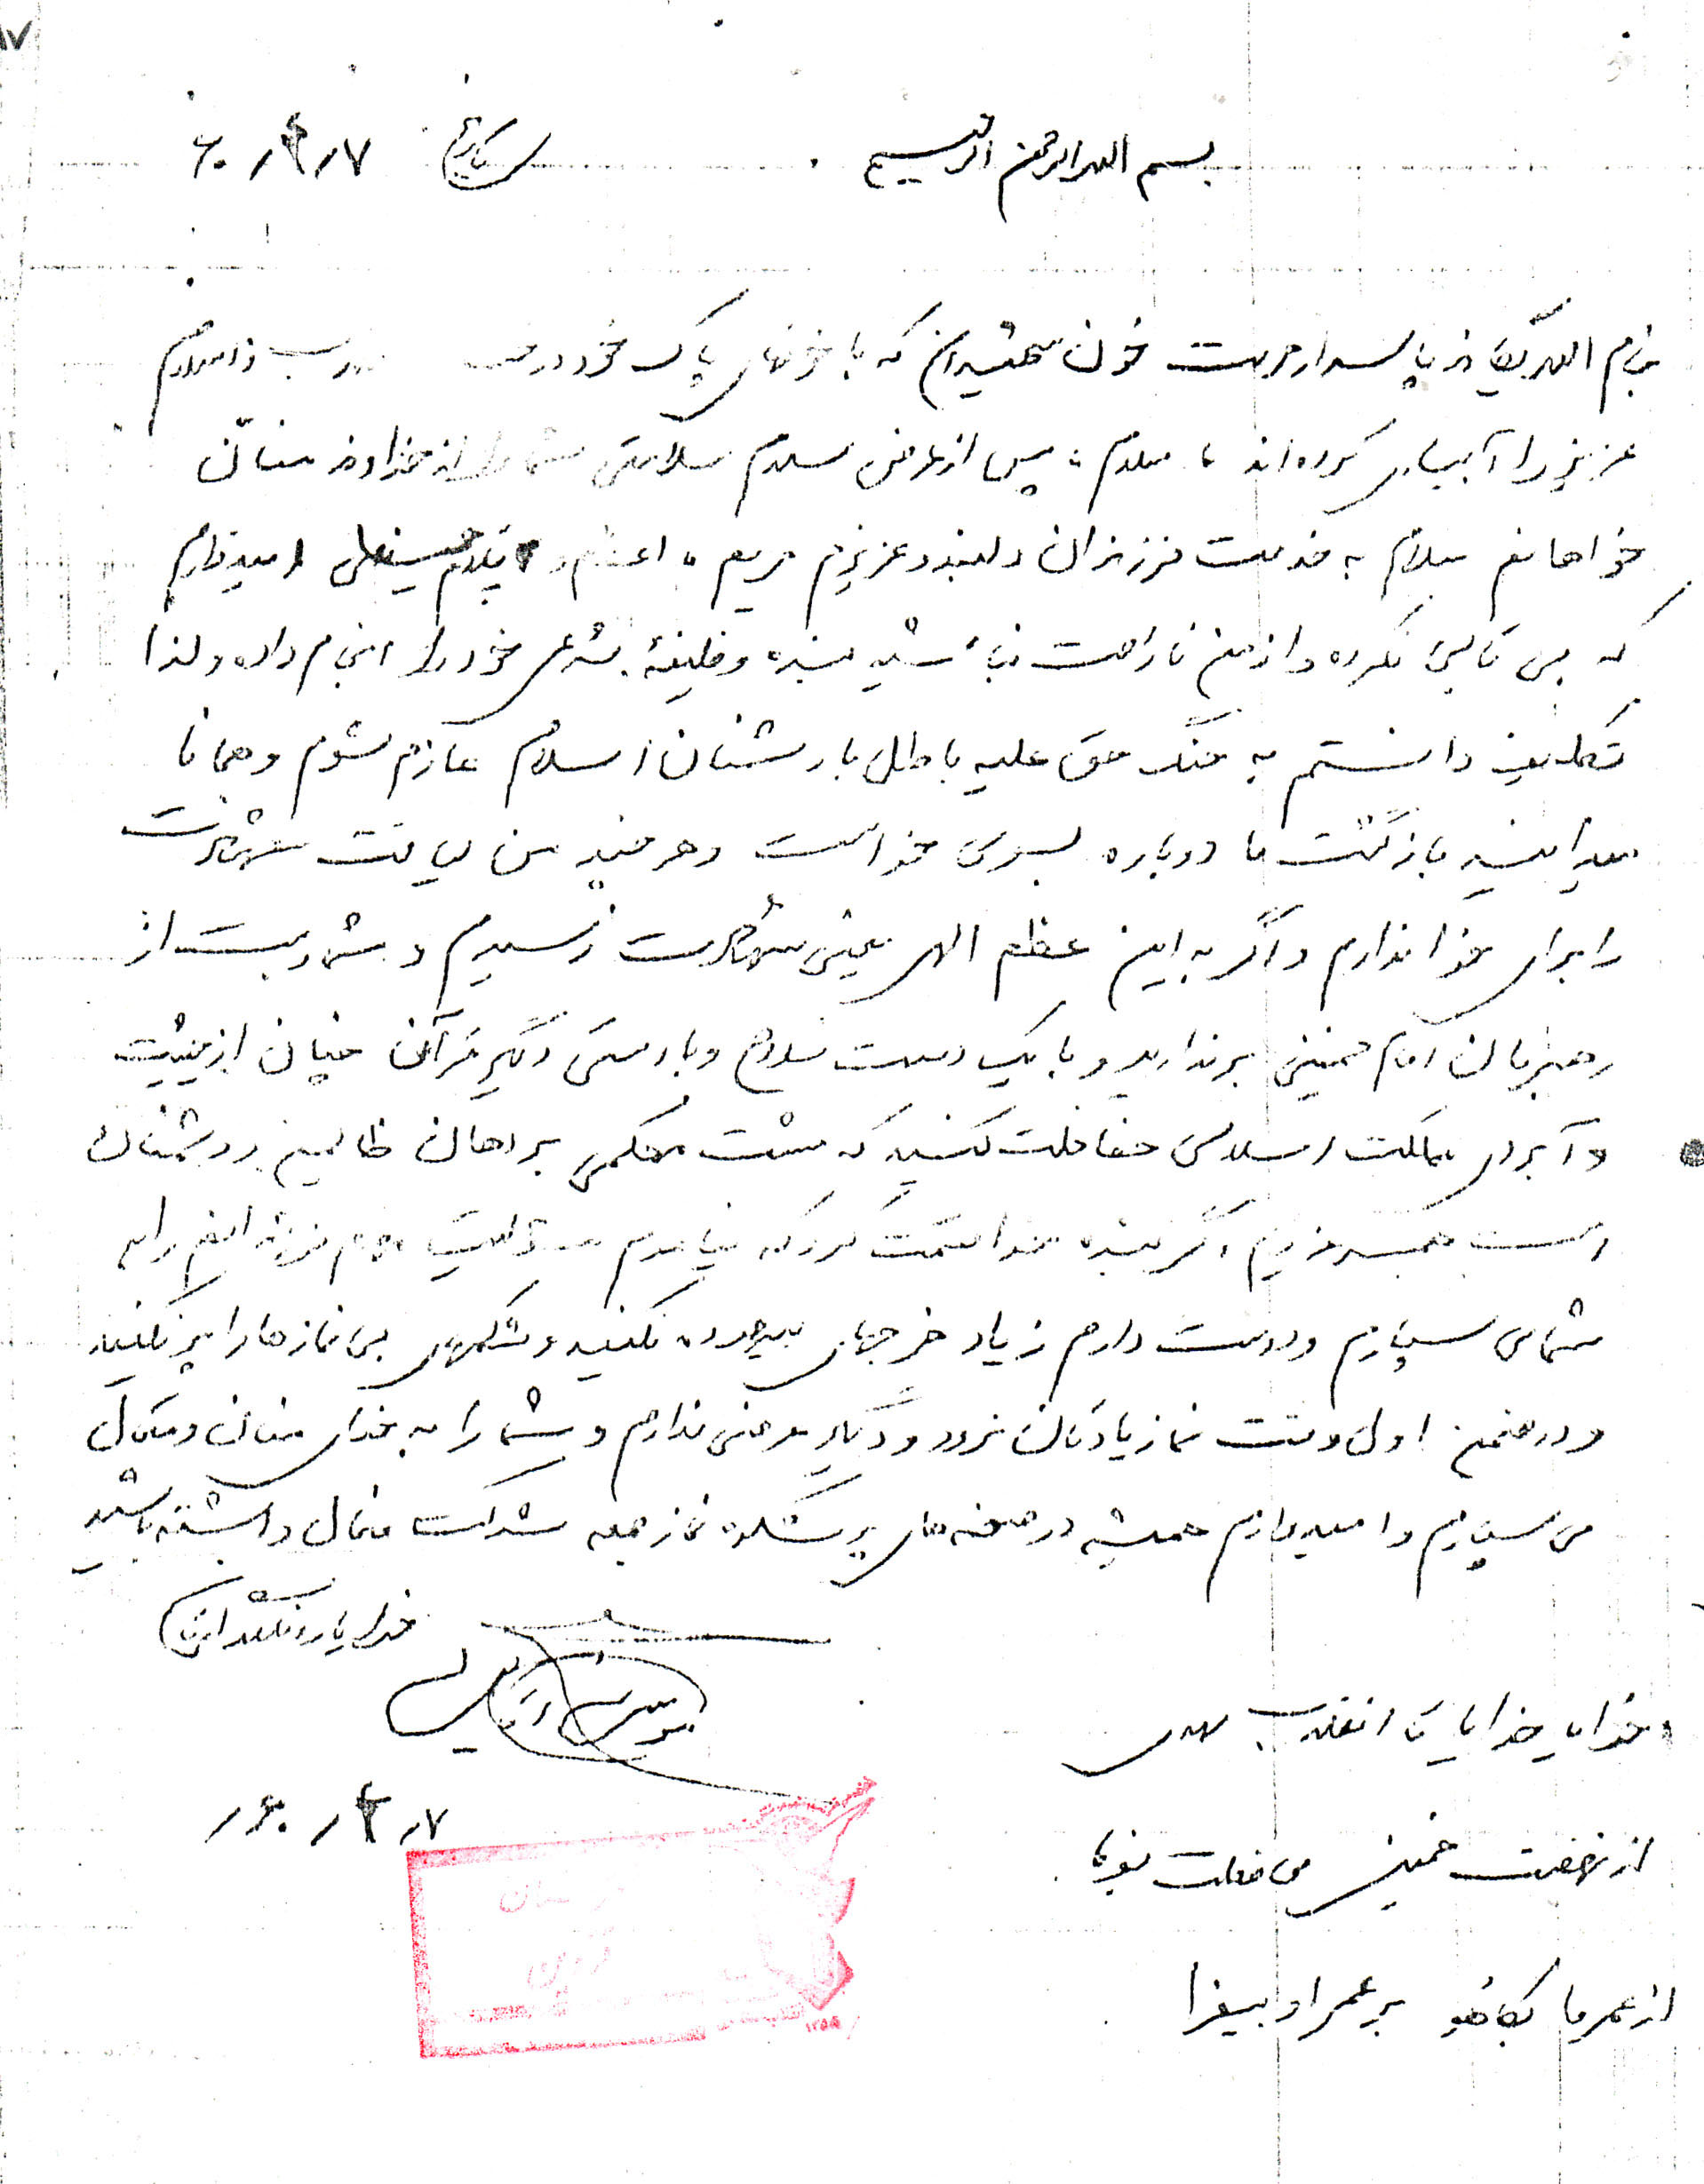 بسم الله الرحمن الرحیم تاریخ ۶۰/۴/۷
بنام الله یگانه پاسدار حرمت خون شهیدان که با خونهای پاک خود درخت اسلام
عزیز را آبیاری کرده‌اند، سلام، پس از عرض سلام سلامتی شما را از خداوند منان
خواهانم سلام به خدمت فرزندان دلبند و عزیزم مریم، اعظم و حسینعلی امیدوارم
که بی تابی نکرده و از من ناراحت نباشید بنده وظیفهٔ شرعی خود را انجام داده و لذا
تکلیف دانستم به جنگ حق علیه باطل با دشمنان اسلام عازم شوم و همانا
میدانید بازگشت ما دوباره بسوی خداست و هر چند من لیاقت شهادت
را برای خدا ندارم و اگر به این عظم الهی یعنی شهادت رسیدم و شما دست از
رهبرمان امام خمینی برندارید و با یک دست سلاح و با دستی دگیر قرآن چنان از حیثیت
و آبروی مملکت اسلامی حفاظت کنید که مشت محکمی بر دهان ظالمین و دشمنان
است همسر عزیزم اگر بنده خدا قسمت کرد که نیامدم فرزندانم را به
شما می سپارم و دوست دارم زیاد خرجهای بیهوده نکنید و شکمهای بی نمازها را پر نکنید
و در ضمن اول وقت نماز یادتان نرود و دگیر عرضی ندارم و شما را به خدای منان و متعال
می سپارم و امیدوارم همیشه در صحنه‌های پرشکوه نماز جمعه شرکت فعال داشته باشید
خدا یار و نگهدارتان
خدایا خدایا تا انقلاب مهدی
۶۰/۴/۷
از نهضت خمینی محافظت بفرما
از عمر ما بکاه و بر عمر او بیفزا